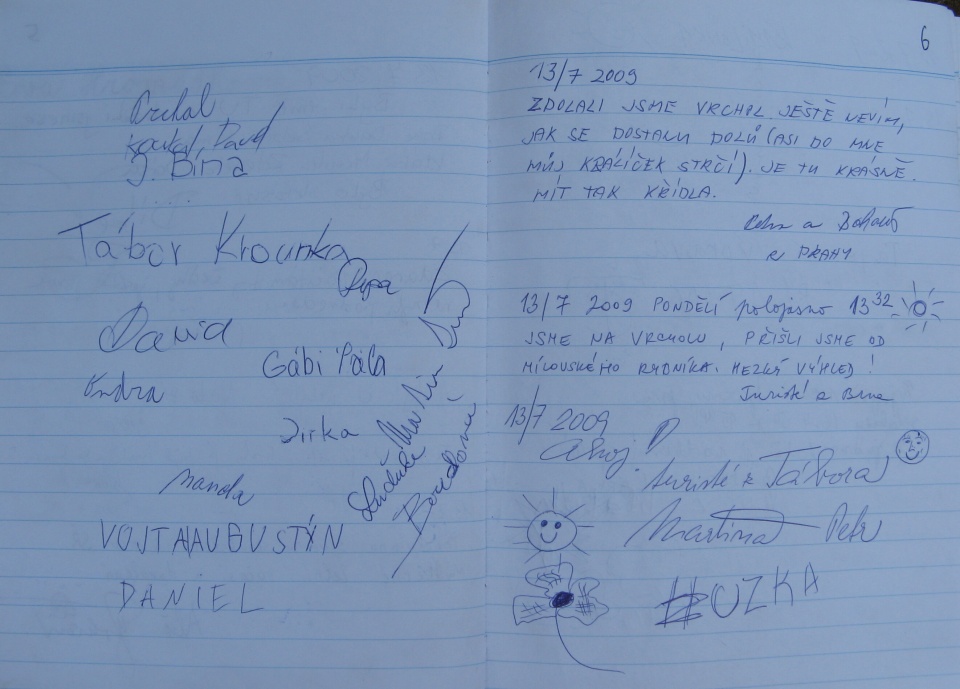 J. Bína
Tábor Krounka
Pepa
David
Gábi Páťa
Ondra
Jirka
Manda
VOJTA AUGUSTÝN
DANIEL
6
13/7 2009
ZDOLALI JSME VRCHOL JEŠTĚ NEVÍM,
JAK SE DOSTANU DOLŮ (ASI DO MNE
MŮJ KRÁLÍČEK STRČÍ). JE TU KRÁSNĚ.
MÍT TAK KŘÍDLA.
a
z PRAHY
13/7 2009 PONDĚLÍ polojasno 13 32
JSME NA VRCHOLU, PŘIŠLI JSME OD
MILOVSKÉHO RYBNÍKA. HEZKÝ VÝHLED!
Turisté z Brna
13/7 2009
Ahoj!
turisté z Tábora
Martina Petr
ZUZKA